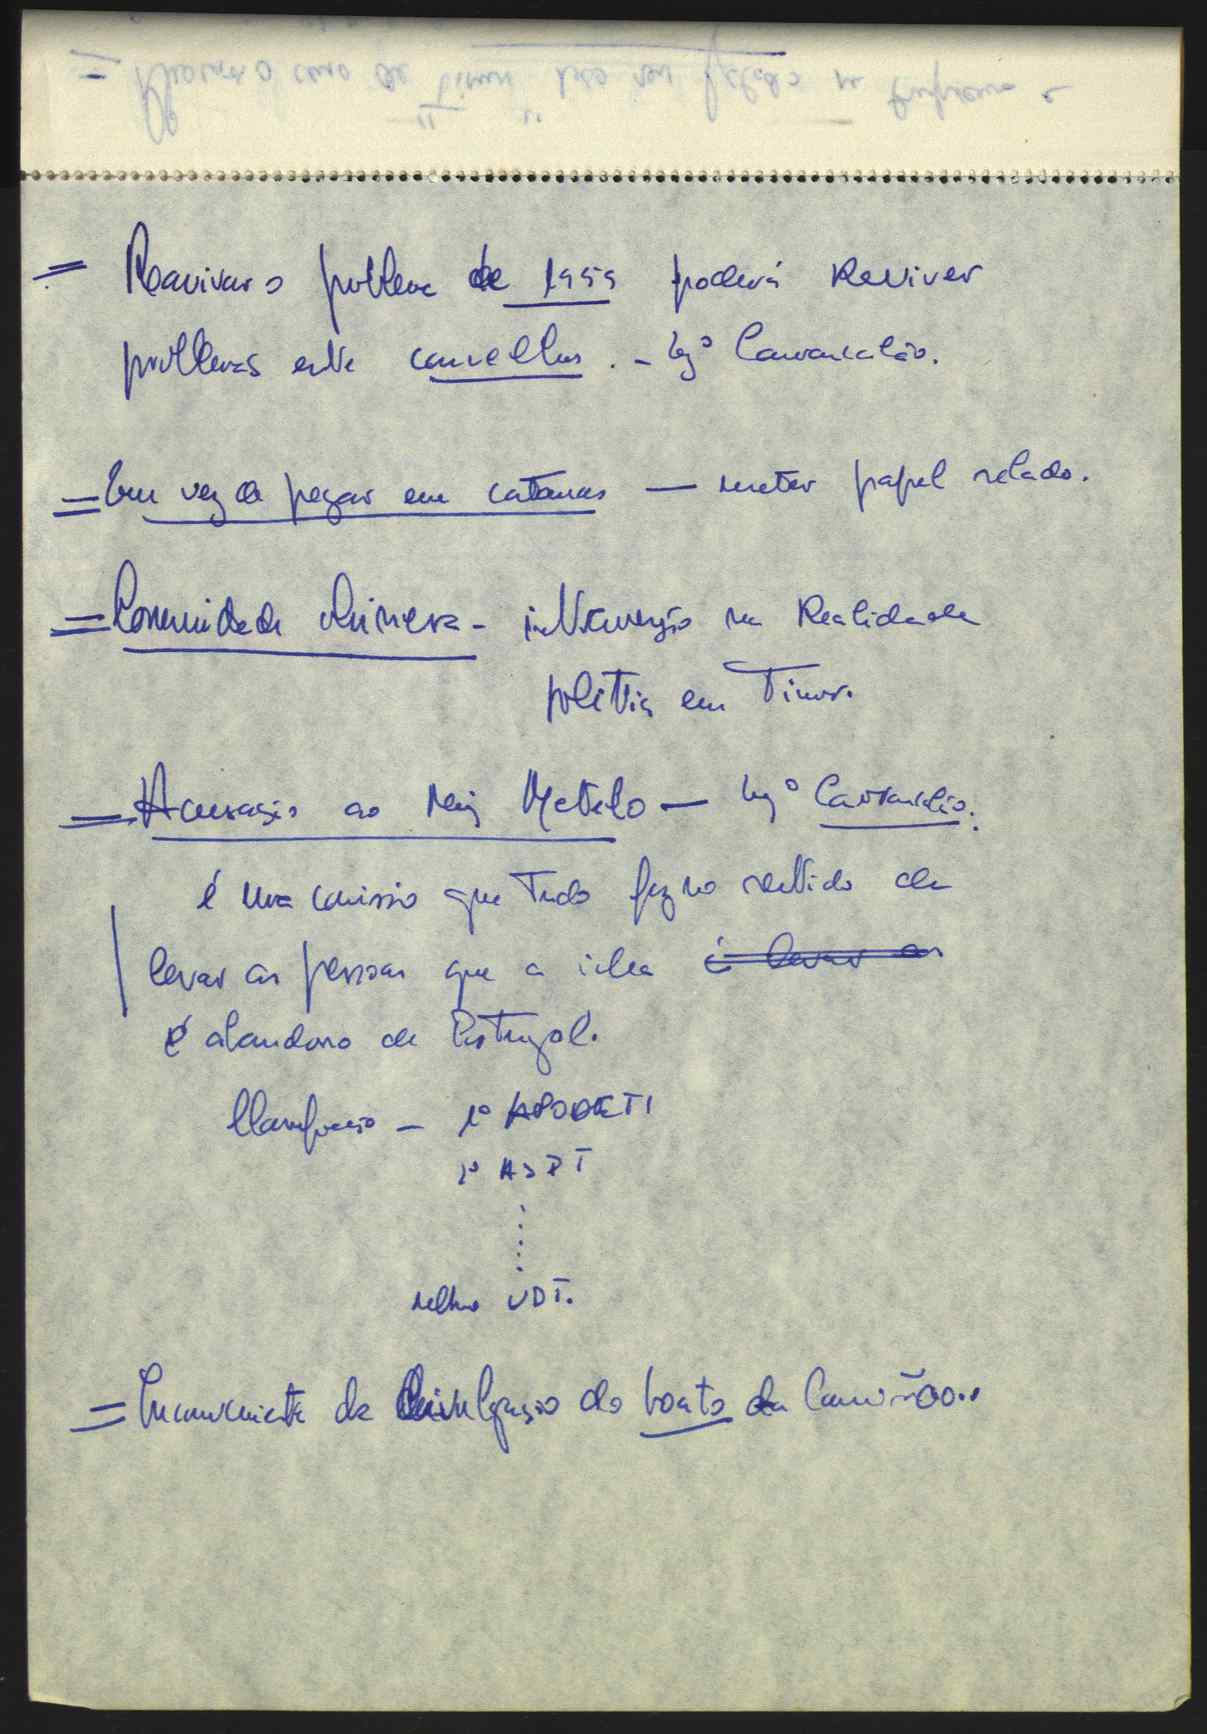 = Reavivar o problema de 1959 poderá Reviver
problemas entre concelhos. - Engº Carrascalão.
= Em vez de pegar em catanas — meter papel selado.
= Comunidade chinesa - intervenção na Realidade
política em Timor.
= Acusação ao Maj Metelo — Engº Carrascalão:
é uma comissão que Tudo fez no sentido de
levar as pessoas que a ideia é levar as
é abandono de Portugal.
- 1º APODETI
2º ASDT
UDT.
= Inconveniente da divulgação do boato do Camarão..